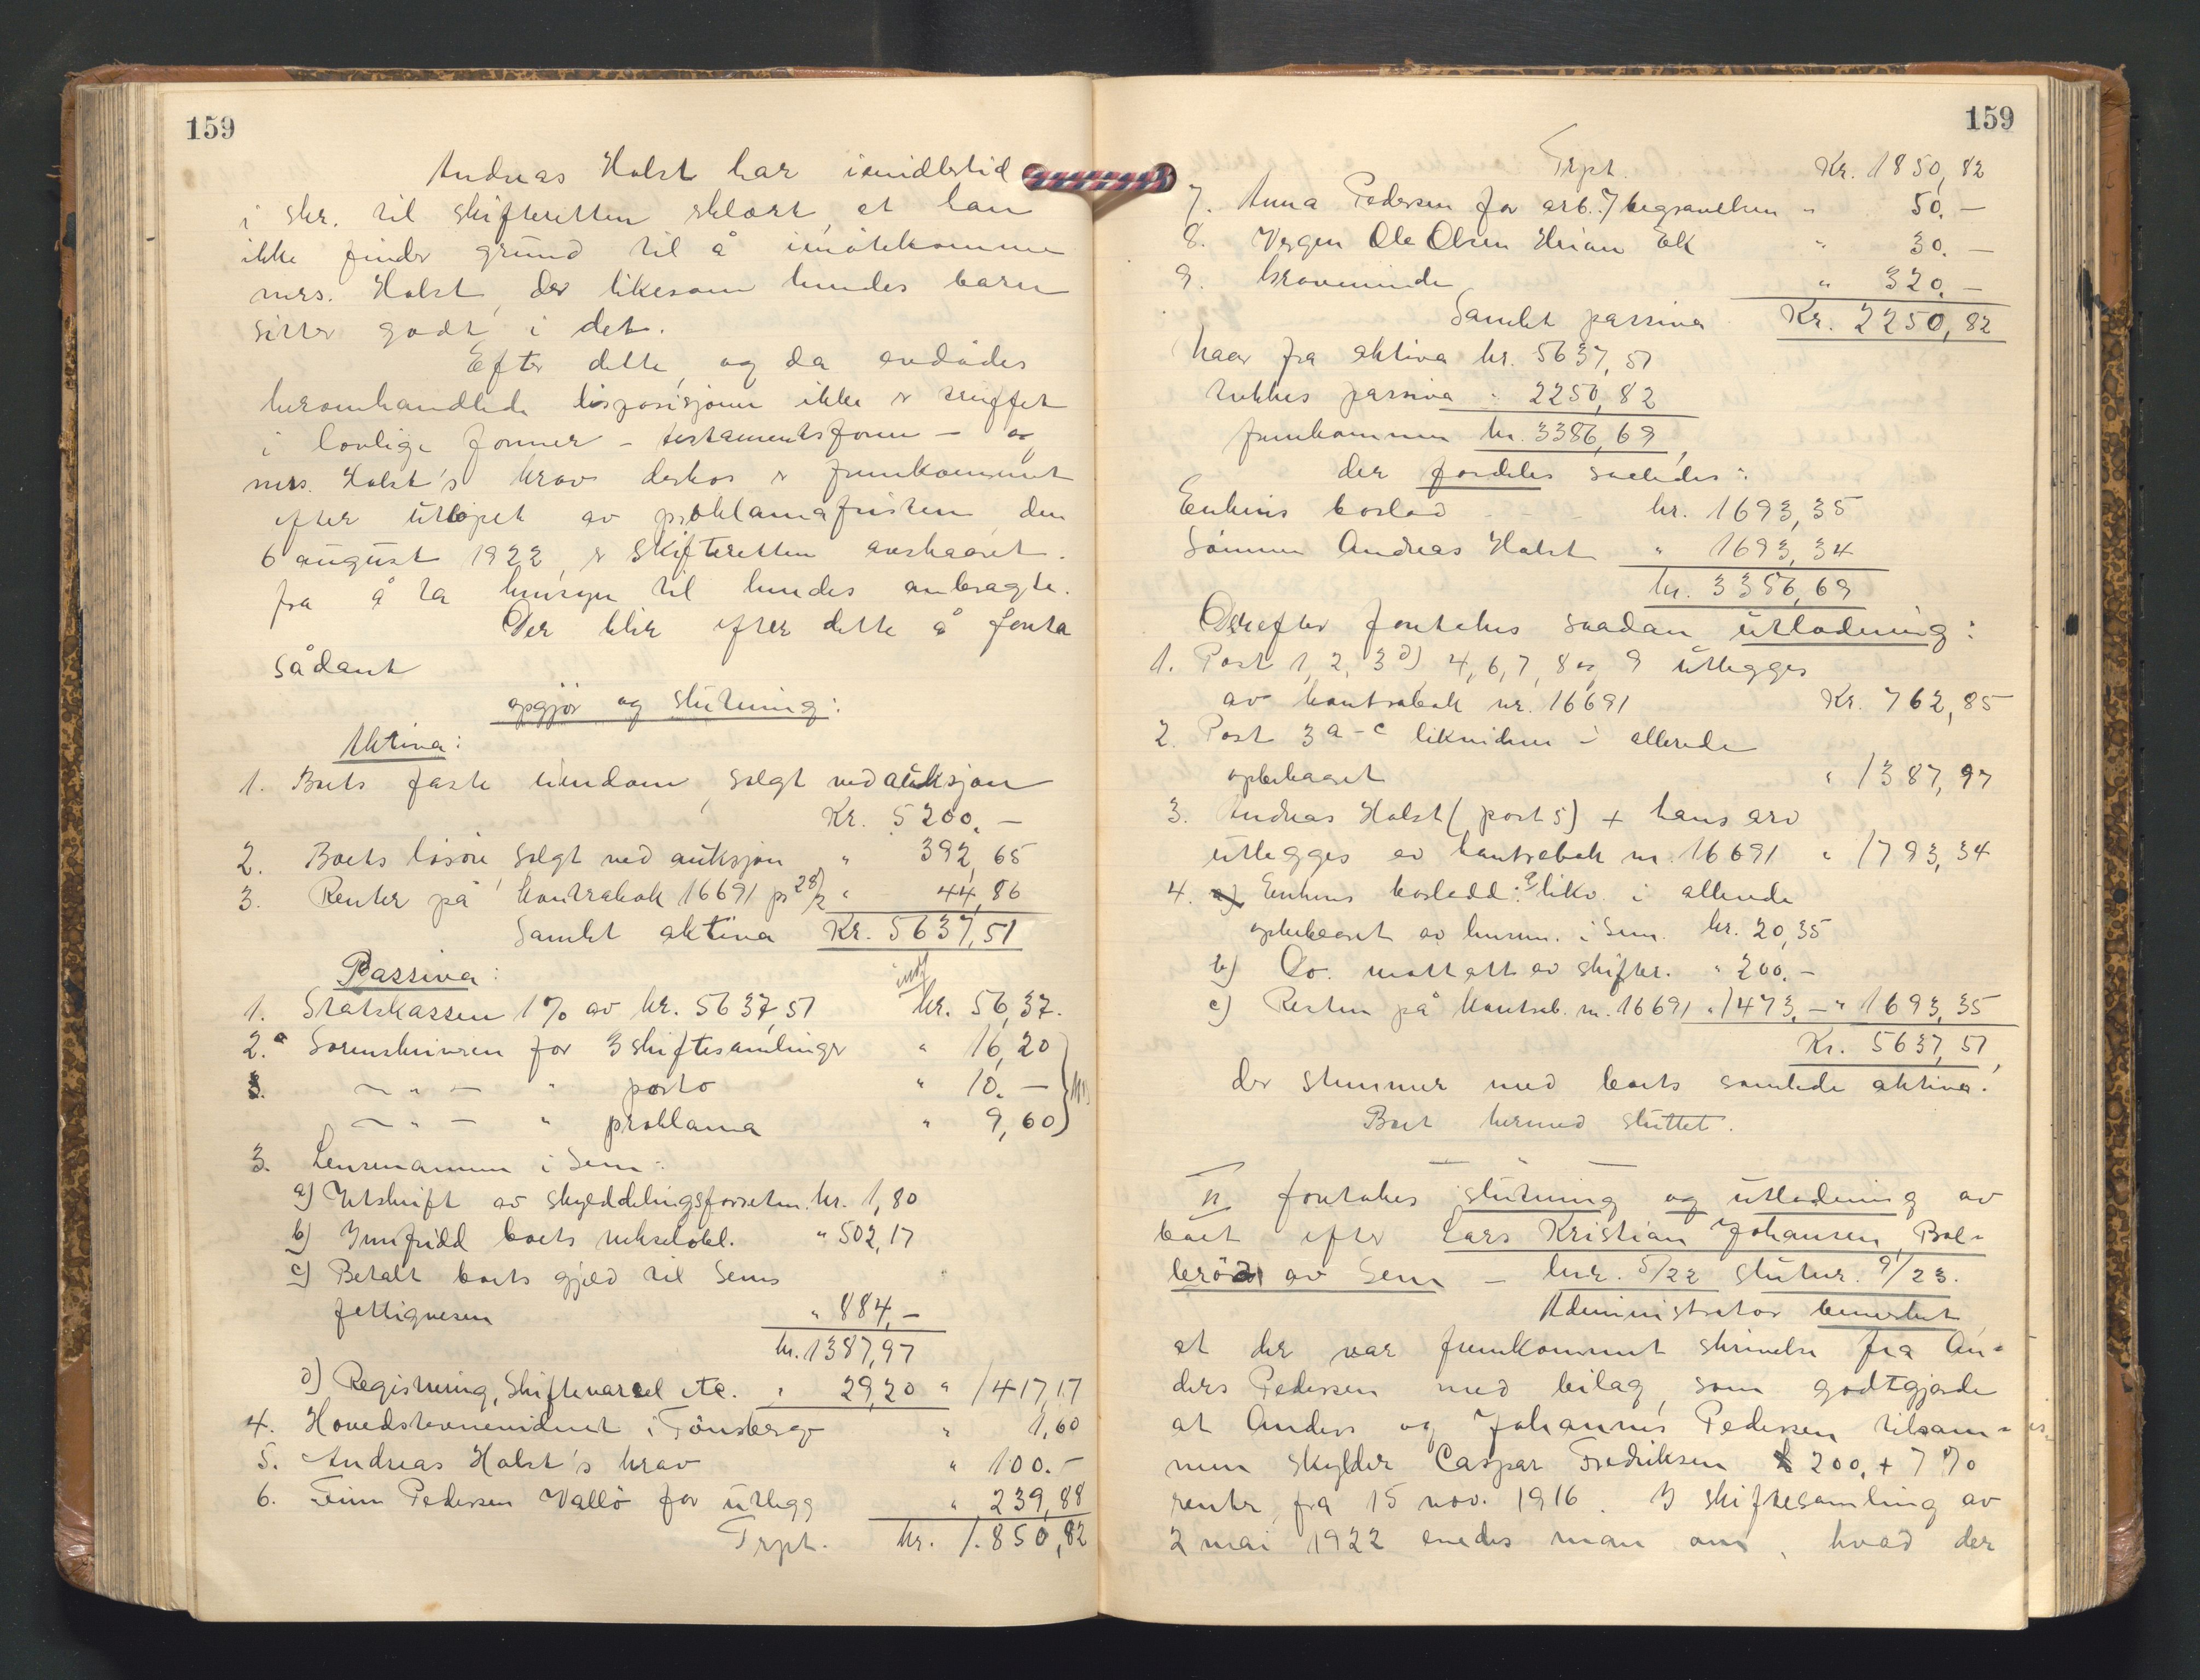 159
Andreas Holst har imidlertid
i skr. til skifteretten erklært, at han
ikke finder grund til å imøtekomme
mrs. Holst, der likesom hendes barn
sitter godt i det.
Efter dette, og da avdødes
heromhandlede disposisjoner ikke er truffet
i lovlige former – testamentsform – og
mrs. Holst's krav derhos er fremkommet
efter utløpet av proklamafristen den
6 august 1922, er skifteretten avskaaret
fra å ta hensyn til hendes anbragte.
Der blir efter dette å foreta
sådant
opgjør og slutning:
Aktiva:
1. Boets faste eiendom, solgt ved auksjon
Kr. 5200.–
2. Boets løsøre, solgt ved auksjon " 392,65
3. Renter på kontrabok 16691 pr 28/2 " 44,86
Samlet aktiva Kr. 5637,51
Passiva:
1. Statskassen 1% av kr. 5637,51 kr. 56,37.
2. Sorenskriveren for 3 skiftesamlinger " 16,20
– " – " porto " 10.–
– " – " proklama " 9,60
3. Lensmannen i Sem:
a) Utskrift av skylddelingsforretn. kr. 1,80
b) Innfridd boets vekselobl. " 502,17
c) Betalt boets gjeld til Sems
fattigvesen " 884,–
kr. 1387,97
d) Registrering, skiftevarsel etc. " 29,20 " 1417,17
4. Hovedstevnevidnet i Tønsberg " 1,60
5. Andreas Holst's krav " 100.–
6. Finn Pedersen Vallø for utlegg " 239,88
Trpt. kr. 1.850,82
159
Trpt. Kr. 1850,82
7. Anna Pedersen for arb. v/ begravelsen " 50.–
8. Vergen Ole Olsen Hvian Ek " 30.–
9. Gravminde " 320.–
Samlet passiva Kr. 2250,82
Naar fra aktiva kr. 5637,51
trekkes passiva " 2250,82
fremkommer kr. 3386,69,
der fordeles saaledes:
Enkens boslod – – – kr. 1693,35
Sønnen Andreas Holst " 1693,34
kr. 3356,69
Derefter foretokes saadan utlodning:
1. Post 1, 2, 3d) 4, 6, 7, 8 og 9 utlegges
av kontrabok nr. 16691 Kr. 762,85
2. Post 3 a-c likvidum i allerede
opbebaaret " 1387,97
3. Andreas Holst (post 5) + hans arv
utlegges av kontrabok nr. 16691 " 1793,34
4. Enkens boslodd: a) likv. i allerede
opbebaaret av lensm. i Sem. kr. 20,35
b) Do. mottatt av skifter. " 200.–
c) Resten på kontrab. nr. 16691 " 1473,– " 1693,35
Kr. 5637,51,
der stemmer med boets samlede aktiva.
Boet hermed sluttet.
foretokes slutning og utlodning av
boet efter Lars Kristian Johansen, Bol-
lerød av Sem – hnr. 5/22 slutnr. 9/23.
Administrator bemerket
at der var fremkommet skrivelse fra An-
ders Pedersen med bilag, som godtgjorde
at Anders og Johannes Pedersen tilsam-
men skylder Caspar Fredriksen 200,+ 7 %
rente fra 15 nov. 1916. I skiftesamling av
2 mai 1922 enedes man om, hvad der